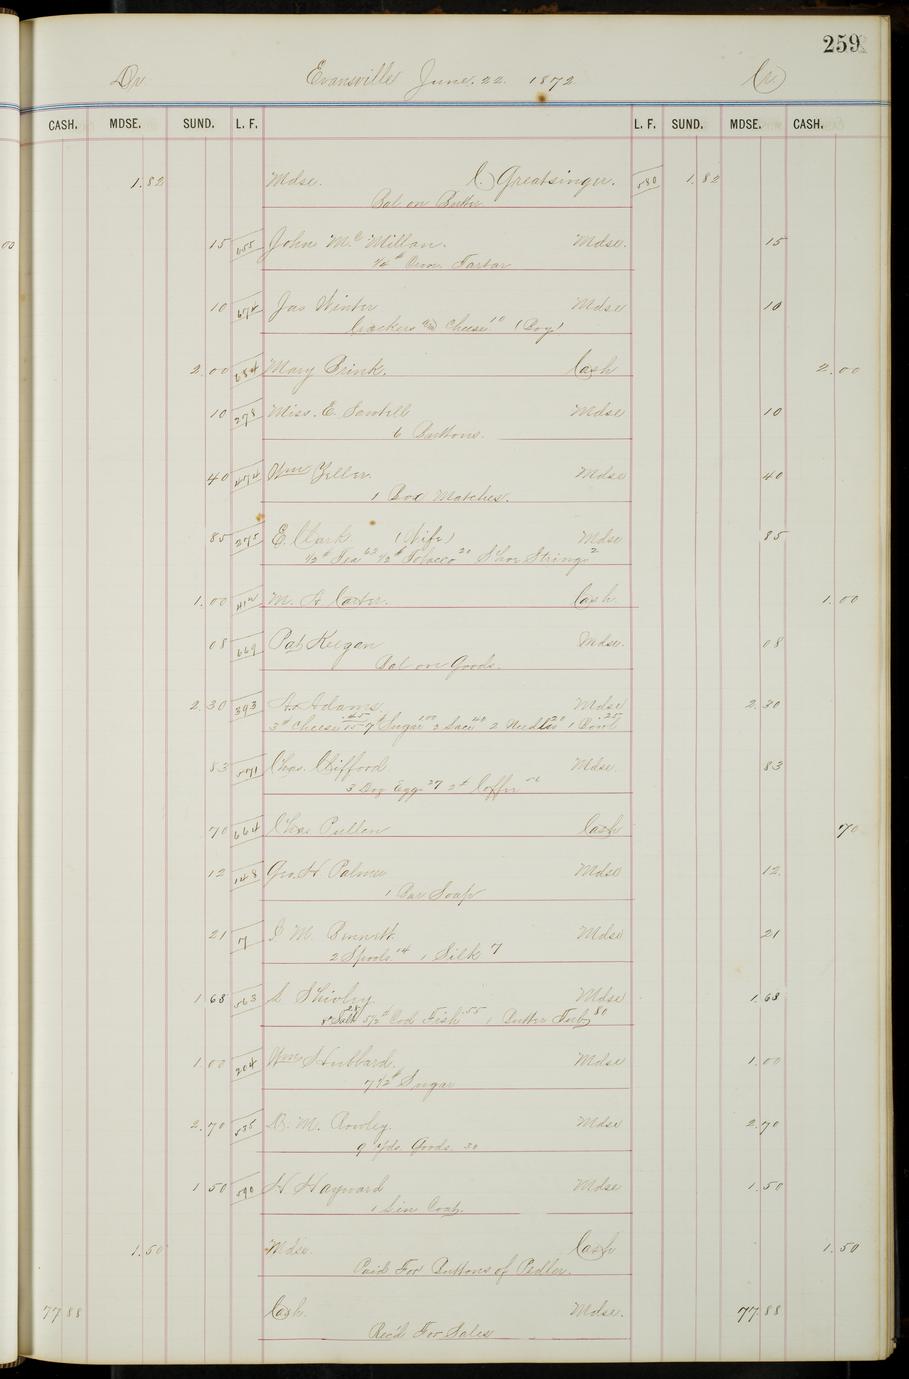 259
Dr Evansville June. 22. 1872 Cr
CASH. MDSE. SUND. L. F. L. F. SUND. MDSE. CASH.
1.82 Mdse. C. Greatsinger. 580 1.82
Bal on Butter
00 15 655 John Mc Millan. Mdse. 15
1/2 # Crem. Tartar
10 674 Jas Winter Mdse 10
Crackers and Cheese 10 (Boy)
2.00 684 Mary Brink. Cash 2.00
10 278 Miss. E. Sawtell Mdse 10
6 Buttons.
40 474 Wm Zeller. Mdse 40
1 Box Matches.
85 275 E. Clark (Wife) Mdse 85
1/2 # Tea 63 1/2 # Tobacco 20 Shoe Strings 2
1.00 412 M. H Carter. Cash 1.00
08 669 Pat Keegan Mdse. 08
Bal on Goods.
2.30 393 H. Adams. Mdse 2.30
3 # Cheese 15 45 7 # Sugar 100 2 Lace 40 2 Needles 20 1 25
83 571 Chas. Clifford Mdse. 83
3 Doz Eggs 27 2 # Coffee
70 664 Chas Pullen Cash 70
12 148 Geo. H Palmer Mdse 12.
1 Bar Soap
21 7 J M. Bennett. Mdse 21
2 Spools 14 1 Silk 7
1 68 563 S Shivley. Mdse 1.68
Salt 28 5 1/2 # Cod Fish .55 1 Butter Tub 80
1.00 204 Wm Hubbard. Mdse 1.00
7 1/2 # Sugar
2.70 535 B. M. Rowley. Mdse 2.70
9 Yds. Goods. 30
1 50 590 H Hayward Mdse 1.50
1 Lin Coat.
1.50 Mdse. Cash 1.50
Paid For Buttons of Pedler.
77.88 Cash. Mdse. 77.88
Rec'd For Sales